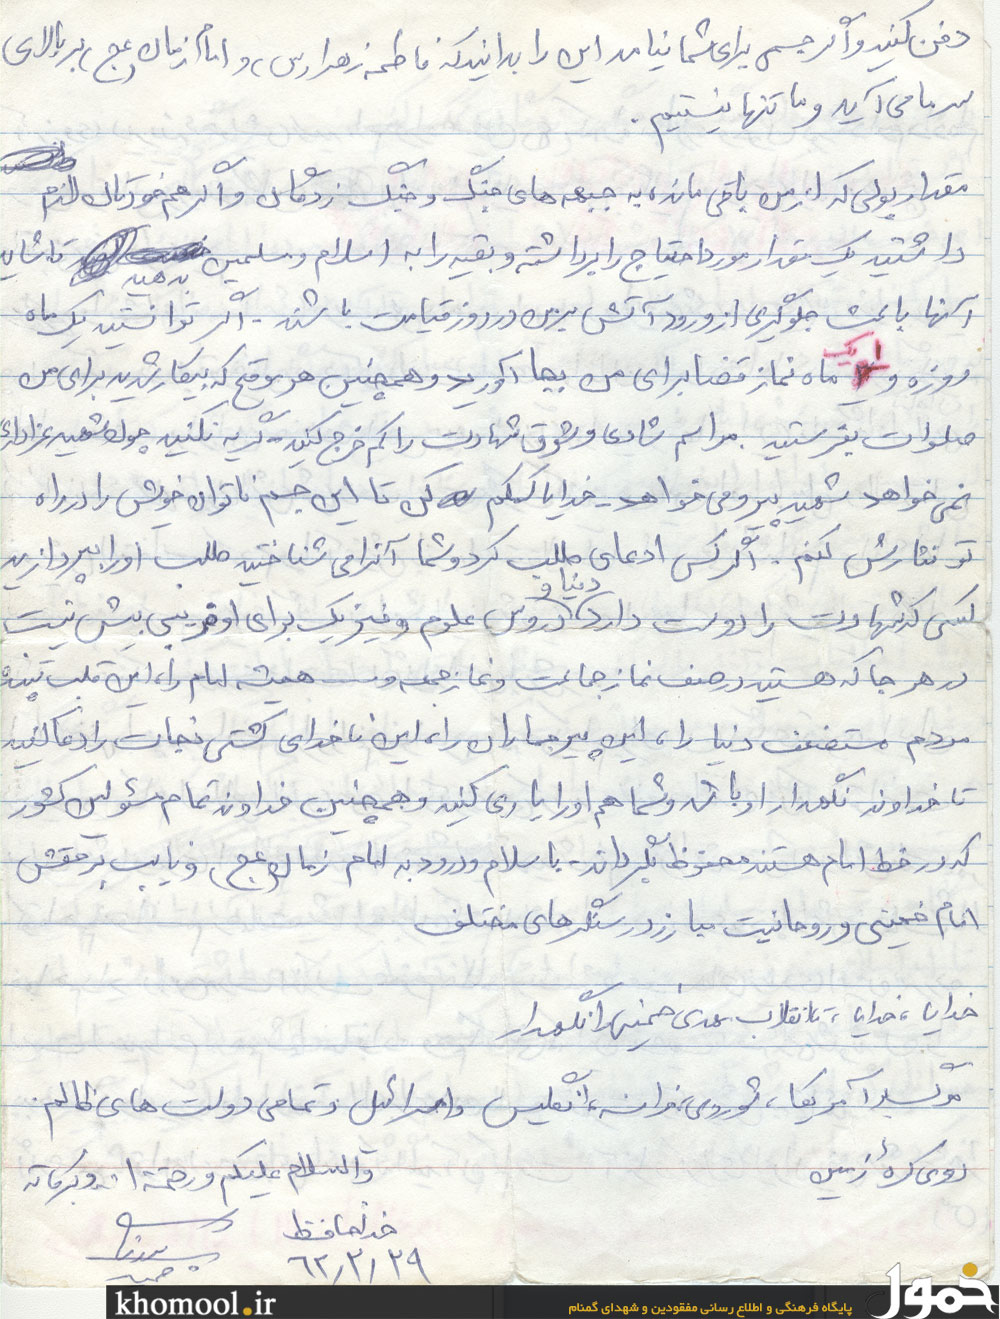 دفن کنید و اگر جسم برای شما نیامد این را بدانید که فاطمه زهرا (س) و امام زمان (عج) بر بالای
سر ما می آید و ما تنها نیستیم.
مقدار پولی که از من باقی مانده به جبهه های جنگ و جنگ زدگان و اگر هم خودتان لازم
داشتید یک مقدار مورد احتیاج را برداشته و بقیه را به اسلام و مسلمین بدهید تا شاید
آنها باعث جلوگیری از ورود آتش بر من در روز قیامت باشند. اگر توانستید یک ماه
روزه و یک ماه نماز قضا برای من بجا آورید و همچنین هر موقع که بیکار شدید برای من
صلوات بفرستید. مراسم شادی و شوق شهادت را کم خرج کنید گریه نکنید چون شهید عزادار
نمی خواهد شهید پیرو می خواهد. خدایا کمکم کن تا این جسم ناتوان خویش را در راه
تو نثارش کنم. اگر کس ادعای طلب کرد و شما آنرا می شناختید طلب او را بپردازید
کسی که شهادت را دوست دارد دنیا و دروس علوم و فیزیک برای او بیش نیست
در هر جا که هستید در صف نماز جماعت و نماز جمعه و همیشه امام را، این قلب تپنده
مردم مستضعف دنیا را، این پیر جماران را، این ناخدای کشتی نجات را دعا کنید
تا خداوند نگهدار او باشد و شما هم او را یاری کنید و همچنین خداوند تمام مسئولین کشور
که در خط امام هستند محفوظ بگرداند. با سلام و درود به امام زمان (عج) و نایب بر حقش
امام خمینی و روحانیت مبارز در سنگرهای مختلف
خدایا، خدایا، تا انقلاب مهدی خمینی را نگهدار
مرگ بر آمریکا، شوروی، فرانسه، انگلیس و اسرائیل و تمامی دولت های ظالم
روی کرهٔ زمین
والسلام علیکم و رحمة الله و برکاته
خداحافظ
۶۲/۲/۲۹
khomool.ir
پایگاه فرهنگی و اطلاع رسانی مفقودین و شهدای گمنام
خمول